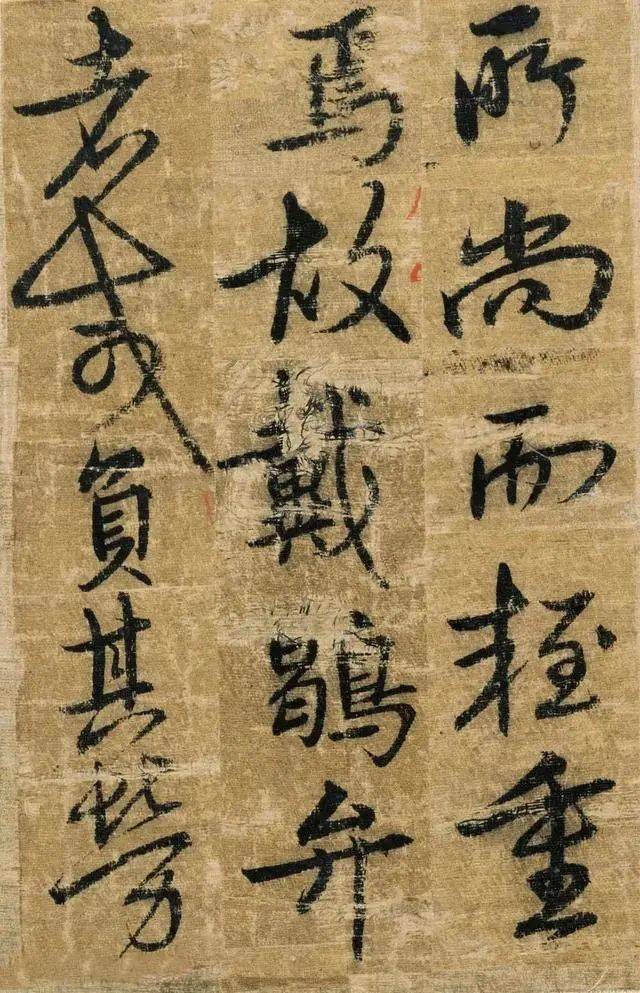 所尚而輕重
焉故戴鶡弁
者或負其勞